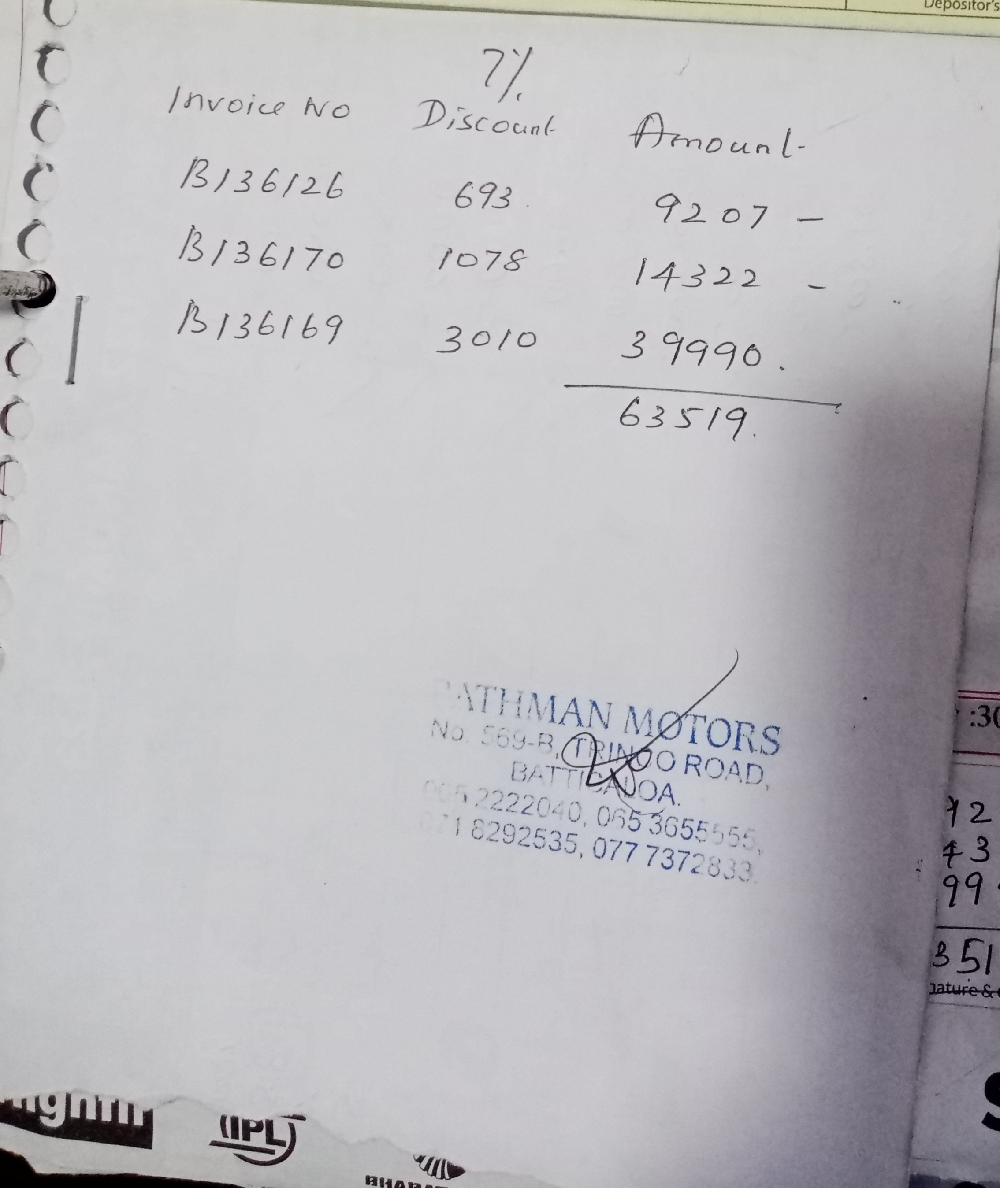 Depositor's
7%
Invoice No Discount Amount
B136126 693. 9207 -
B136170 1078 14322 -
B136169 3010 39990.
63519.
PATHMAN MOTORS
No. 569-B, TRINCO ROAD,
BATTICALOA.
065 2222040, 065 3655555,
071 8292535, 077 7372833.
:30
92
43
99
351
nature &
IPL